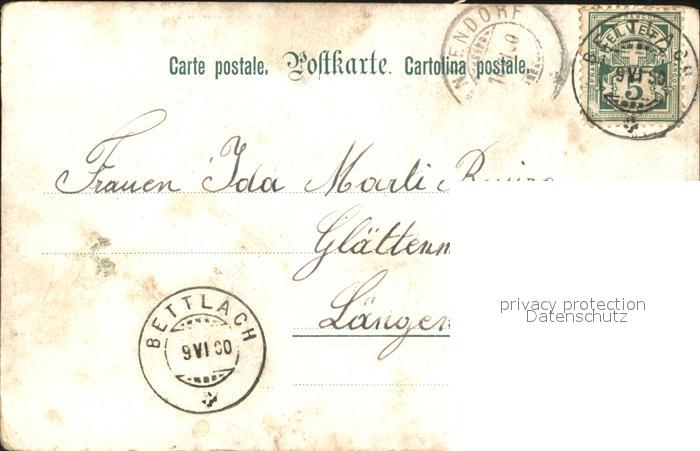 Carte postale. Postkarte. Cartolina postale.
ENDORF
HELVETIA
5
BETTLACH
9 VI 00
Frauen Ida Marti
Glätten
Längen
privacy protection
Datenschutz
BETTLACH
9 VI 00